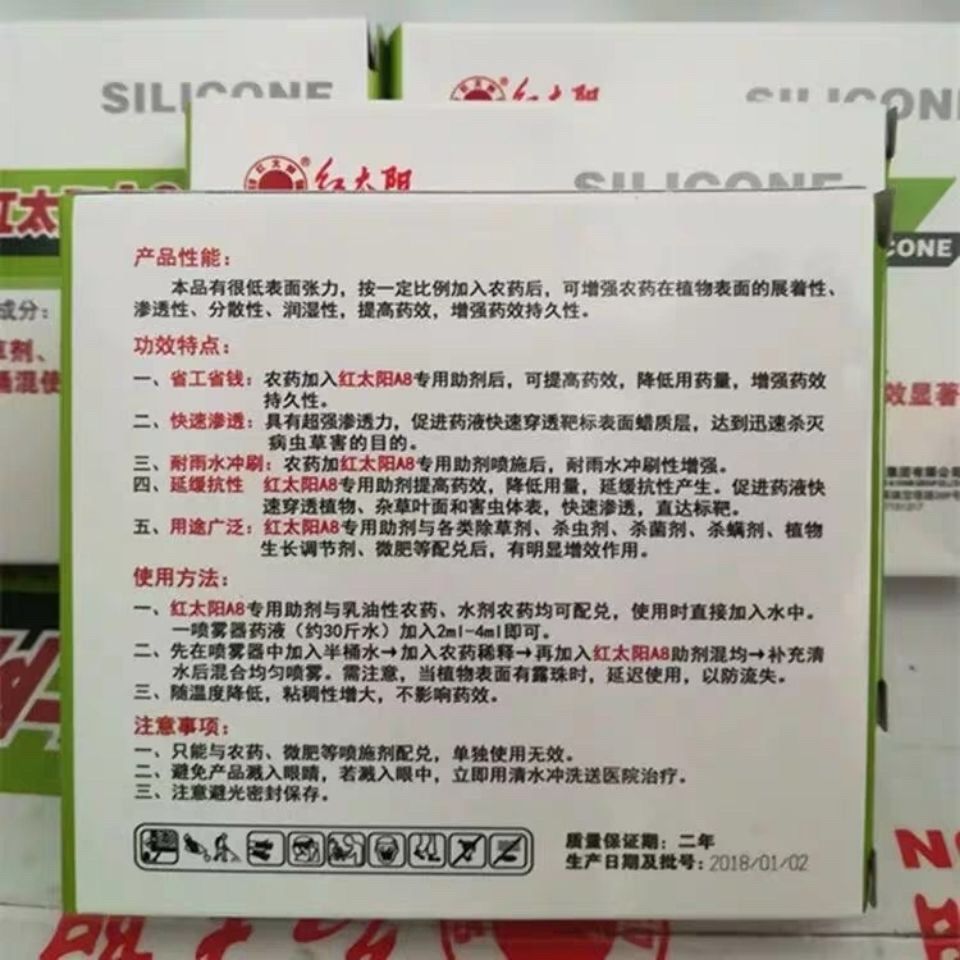 SILICONE
红太阳
SILICONE
红太阳
SILICONE
CONE
成分：
效显著
产品性能：
本品有很低表面张力，按一定比例加入农药后，可增强农药在植物表面的展着性、
渗透性、分散性、润湿性，提高药效，增强药效持久性。
功效特点：
一、省工省钱：农药加入红太阳A8专用助剂后，可提高药效，降低用药量，增强药效
持久性。
二、快速渗透：具有超强渗透力，促进药液快速穿透靶标表面蜡质层，达到迅速杀灭
病虫草害的目的。
三、耐雨水冲刷：农药加红太阳A8专用助剂喷施后，耐雨水冲刷性增强。
四、延缓抗性 红太阳A8专用助剂提高药效，降低用量，延缓抗性产生。促进药液快
速穿透植物、杂草叶面和害虫体表，快速渗透，直达标靶。
五、用途广泛：红太阳A8专用助剂与各类除草剂、杀虫剂、杀菌剂、杀螨剂、植物
生长调节剂、微肥等配兑后，有明显增效作用。
使用方法：
一、红太阳A8专用助剂与乳油性农药、水剂农药均可配兑，使用时直接加入水中。
一喷雾器药液（约30斤水）加入2ml-4ml即可。
二、先在喷雾器中加入半桶水→加入农药稀释→再加入红太阳A8助剂混均→补充清
水后混合均匀喷雾。需注意，当植物表面有露珠时，延迟使用，以防流失。
三、随温度降低，粘稠性增大，不影响药效。
注意事项：
一、只能与农药、微肥等喷施剂配兑，单独使用无效。
二、避免产品溅入眼睛，若溅入眼中，立即用清水冲洗送医院治疗。
三、注意避光密封保存。
质量保证期：二年
生产日期及批号：2018/01/02